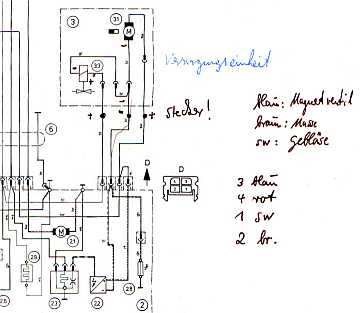 3
31
M
33
Versorgungseinheit
Stecker!
blau: Magnetventil
braun: Masse
sw: Gebläse
6
D
D
3 blau
4 rot
1 sw
2 br.
M
21
29
23
22
28
2